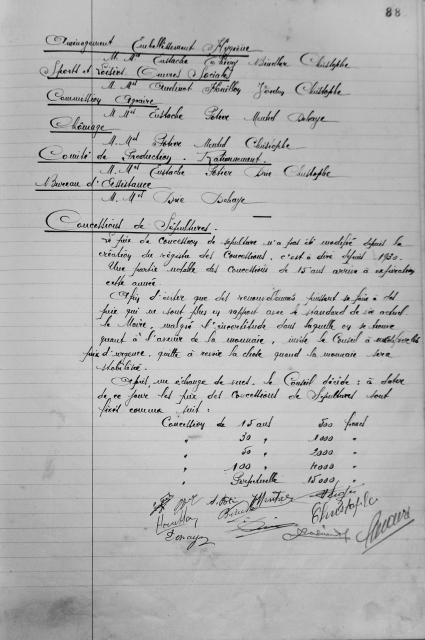 88
Aménagement Embellissement Hygiène
M. Mrs Eustache Christophe
Sports et Loisirs (Oeuvres Sociales)
M. Mrs Houillon Christophe
Commission Agraire
M. Mrs Eustache Potier Debaye
Chômage
M. Mrs Potier Christophe
Comité de Production. Rationnement.
M. Mrs Eustache Potier Christophe
Bureau d'Assistance
M. Mrs Debaye
Concessions de Sépultures.
Le prix de concession de sépulture n'a pas été modifié depuis la
création du registre des Concessions, c'est à dire depuis 1930.
Une partie notable des Concessions de 15 ans arrive à expiration
cette année.
Afin d'éviter que des renouvellements puissent se faire à des
prix qui ne sont plus en rapport avec le standard de vie actuel
le Maire, malgré l'incertitude dans laquelle on se trouve
quant à l'avenir de la monnaie, invite le Conseil à modifier les
prix d'urgence, quitte à revoir la chose quand la monnaie sera
stabilisée.
Après un échange de vues, le Conseil décide : à dater
de ce jour les prix des Concessions de Sépultures sont
fixés comme suit :
Concession de 15 ans 500 francs
" 30 " 1000 "
" 50 " 2000 "
" 100 " 4000 "
" Perpétuelle 15000 "
Houillon
Christophe